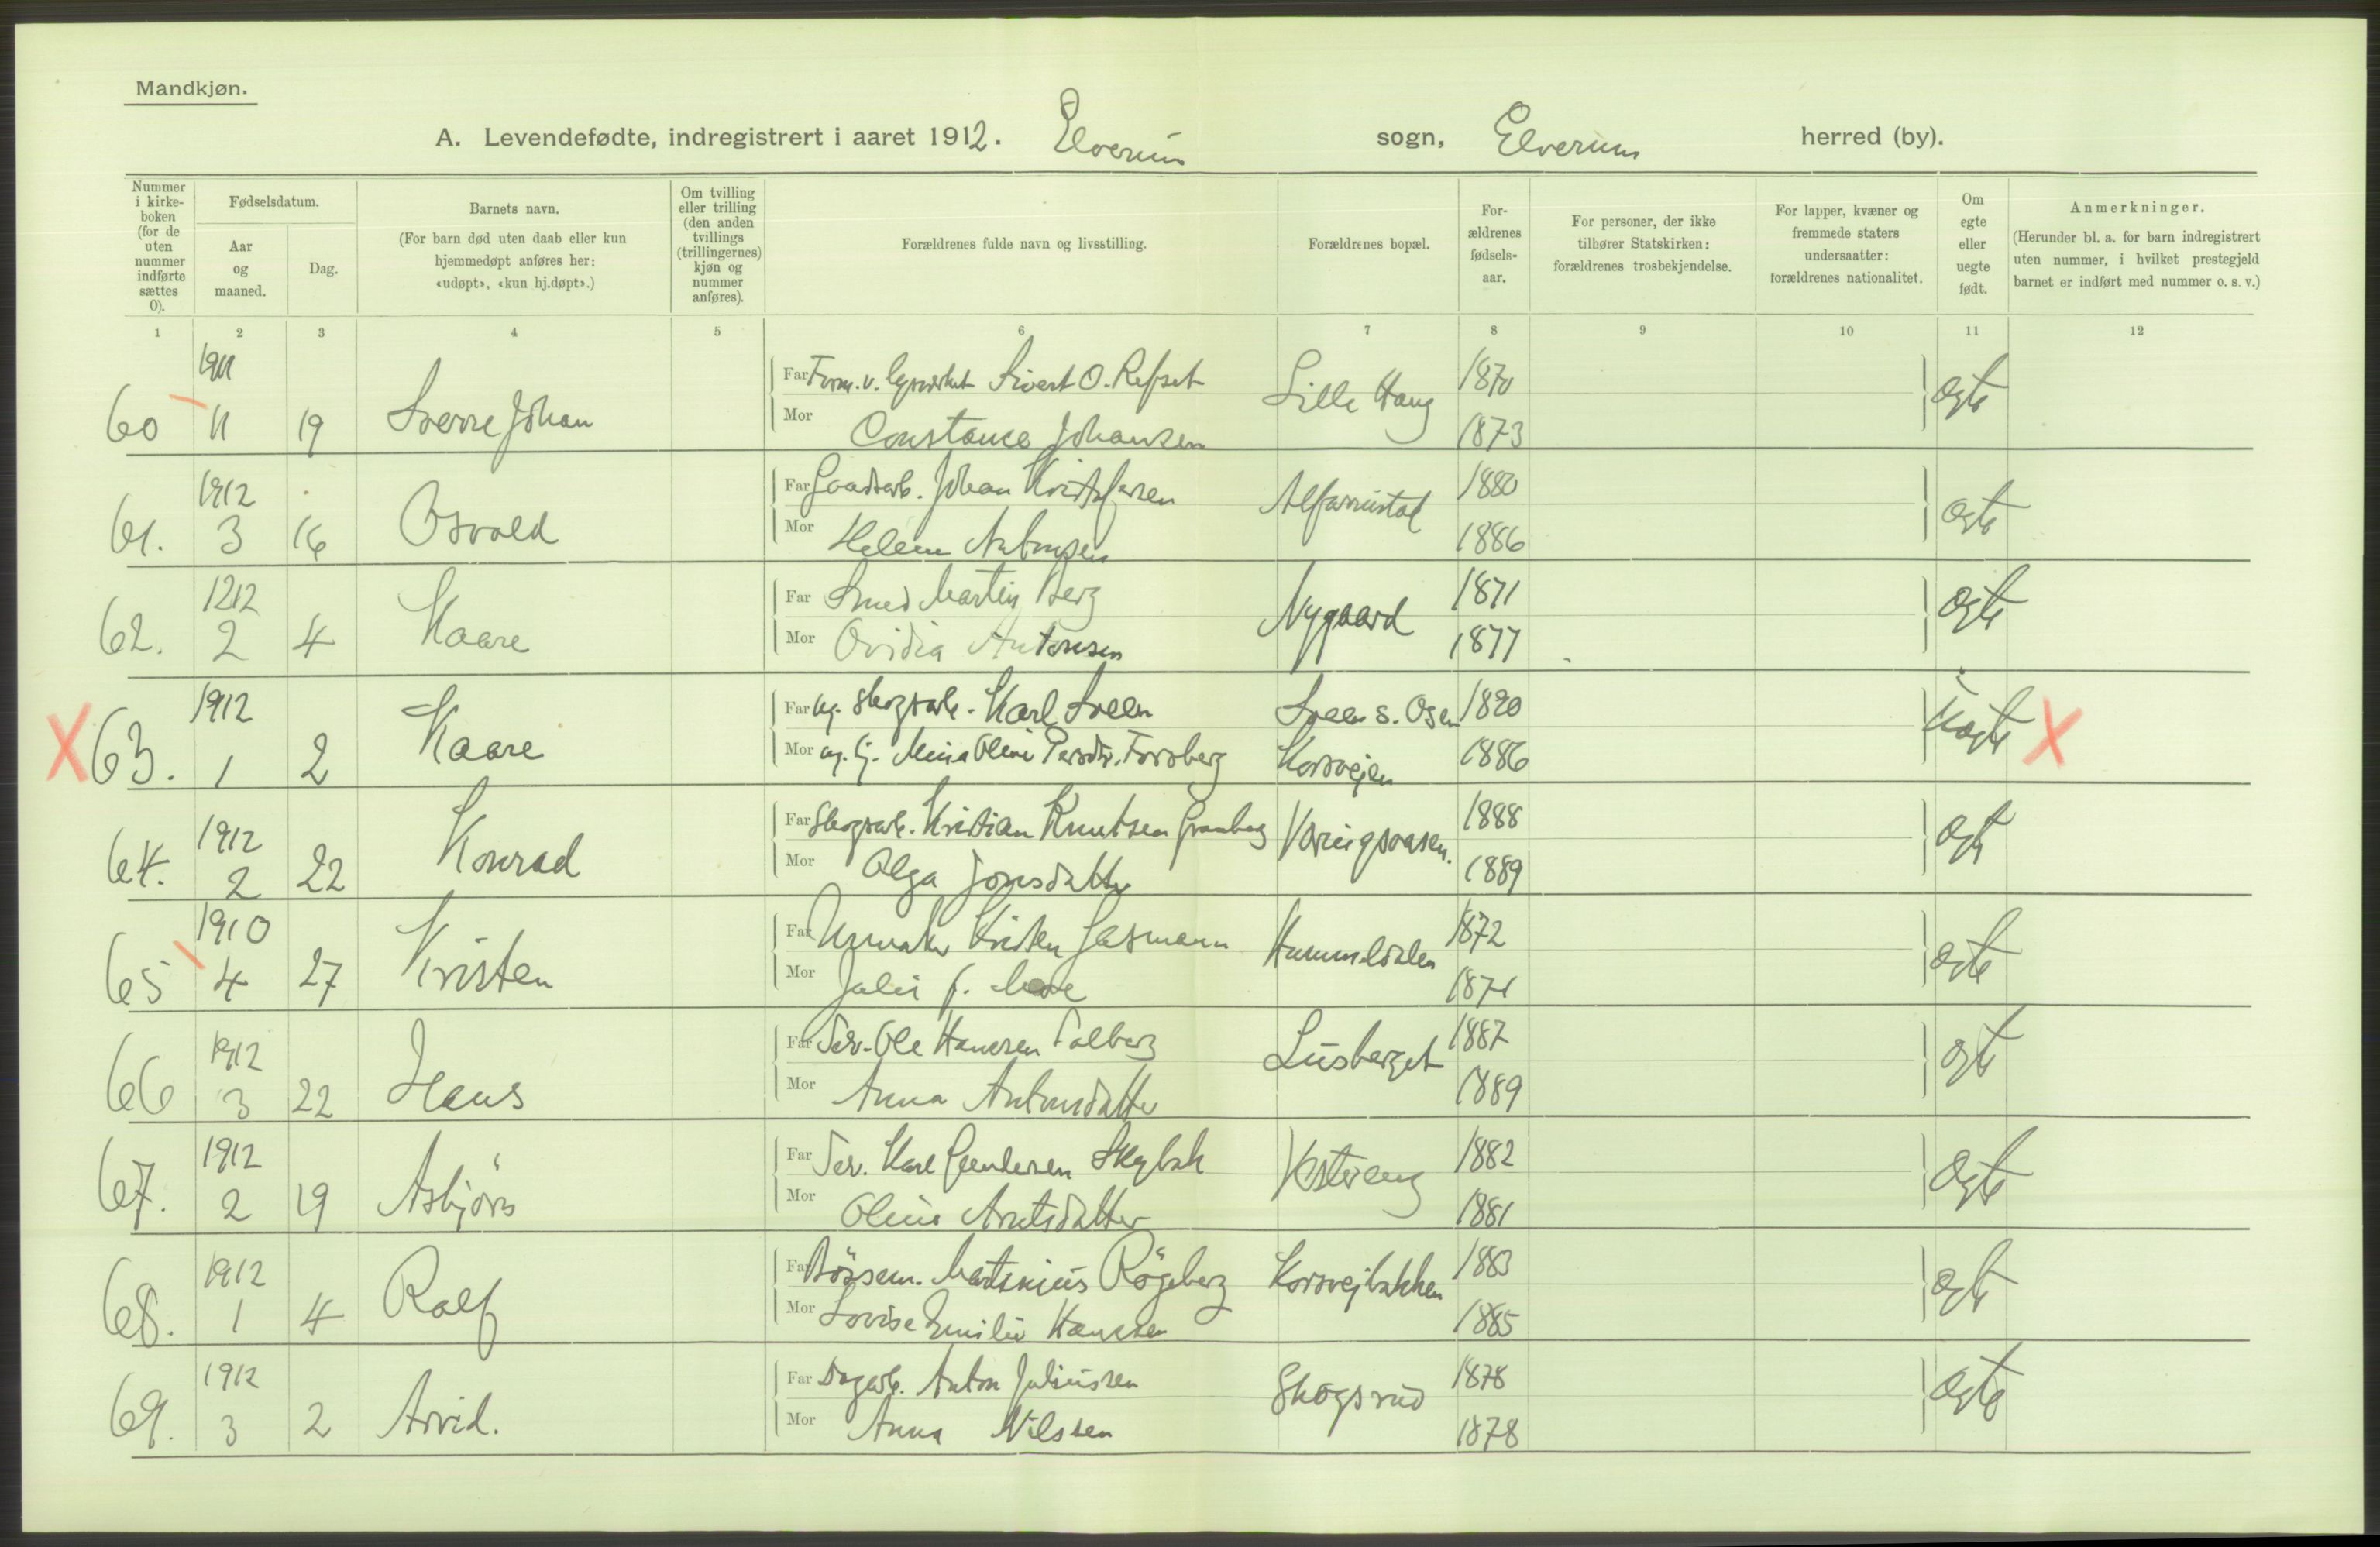 Mandkjøn.
A. Levendefødte, indregistrert i aaret 1912. Elverum sogn, Elverum herred (by).
Nummer i kirke-boken (for de uten nummer indførte sættes 0).
Fødselsdatum.
Aar og maaned.
Dag.
Barnets navn.
(For barn død uten daab eller kun hjemmedøpt anføres her: «udøpt», «kun hj.døpt».)
Om tvilling eller trilling (den anden tvillings (trillingernes) kjøn og nummer anføres).
Forældrenes fulde navn og livsstilling.
Forældrenes bopæl.
For-ældrenes fødsels-aar.
For personer, der ikke tilhører Statskirken: forældrenes trosbekjendelse.
For lapper, kvæner og fremmede staters undersaatter: forældrenes nationalitet.
Om egte eller uegte født.
Anmerkninger.
(Herunder bl. a. for barn indregistrert uten nummer, i hvilket prestegjeld barnet er indført med nummer o. s. v.)
1 2 3 4 5 6 7 8 9 10 11 12
1911 Far Form. v. Sivert O. Refset Lille Haug 1870 egte
60 11 19 Sverre Johan Mor Constance Johansen 1873
1912 Far Johan Kristofersen 1880 egte
61. 3 16 Osvald Mor Helene Antonsen 1886
1212 Far Smed Martin Berg Nygaard 1871 egte
62. 2 4 Kaare Mor Ovidia Antonsen 1877
1912 Far ug. Skogsarb. Karl Sveen Sveen s. Osen 1890 uegte X
X 63. 1 2 Kaare Mor ug. Oline Persdtr. Forsberg Korsvejen 1886
1912 Far Skogsarb. Kristian Knutsen Granberg 1888 egte
64. 2 22 Konrad Mor Olga Jonsdatter 1889
1910 Far Urmaker Kristen Gasmann Hummeldalen 1872 egte
65 4 27 Kristen Mor Julie f. Moe 1871
1912 Far Selv. Ole Hansen Dalberg Lusberget 1887 egte
66 3 22 Hans Mor Anna Antonsdatter 1889
1912 Far Selv. Karl Gundersen Skybak Vestereng 1882 egte
67. 2 19 Asbjörn Mor Oline Arntsdatter 1881
1912 Far Börsem. Martinius Rögeberg Korsvejbakken 1883 egte
68. 1 4 Ralf Mor Lovise Emilie Hansen 1885
1912 Far Dagarb. Anton Juliussen Skogsrud 1878 egte
69. 3 2 Arvid. Mor Anna Nilssen 1878